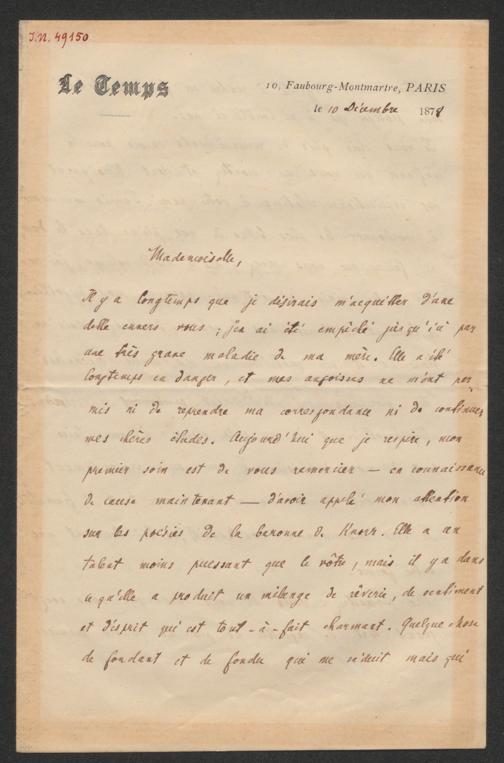 J.N. 49150
Le Temps
10, Faubourg-Montmartre, PARIS
le 10 Décembre 1878
Mademoiselle,
Il y a longtemps que je désirais m'acquitter d'une
dette envers vous ; j'en ai été empêché jusqu'ici par
une très grave maladie de ma mère. Elle a été
longtemps en danger, et mes angoisses ne m'ont per
mis ni de reprendre ma correspondance ni de continuer
mes chères études. Aujourd'hui que je respire, mon
premier soin est de vous remercier — en connaissance
de cause maintenant — d'avoir appelé mon attention
sur les poésies de la baronne de Knorr. Elle a un
talent moins puissant que le vôtre, mais il y a dans
ce qu'elle a produit un mélange de rêverie, de sentiment
et d'esprit qui est tout-à-fait charmant. Quelque chose
de fondant et de fondu qui me séduit mais qui